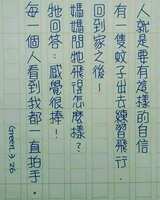 人就是要有這樣的自信
有一隻蚊子出去練習飛行.
回到家之後~
媽媽問牠飛得怎麼樣?
牠回答:感覺很棒!
每一個人看到我都一直拍手.
Green 3.26